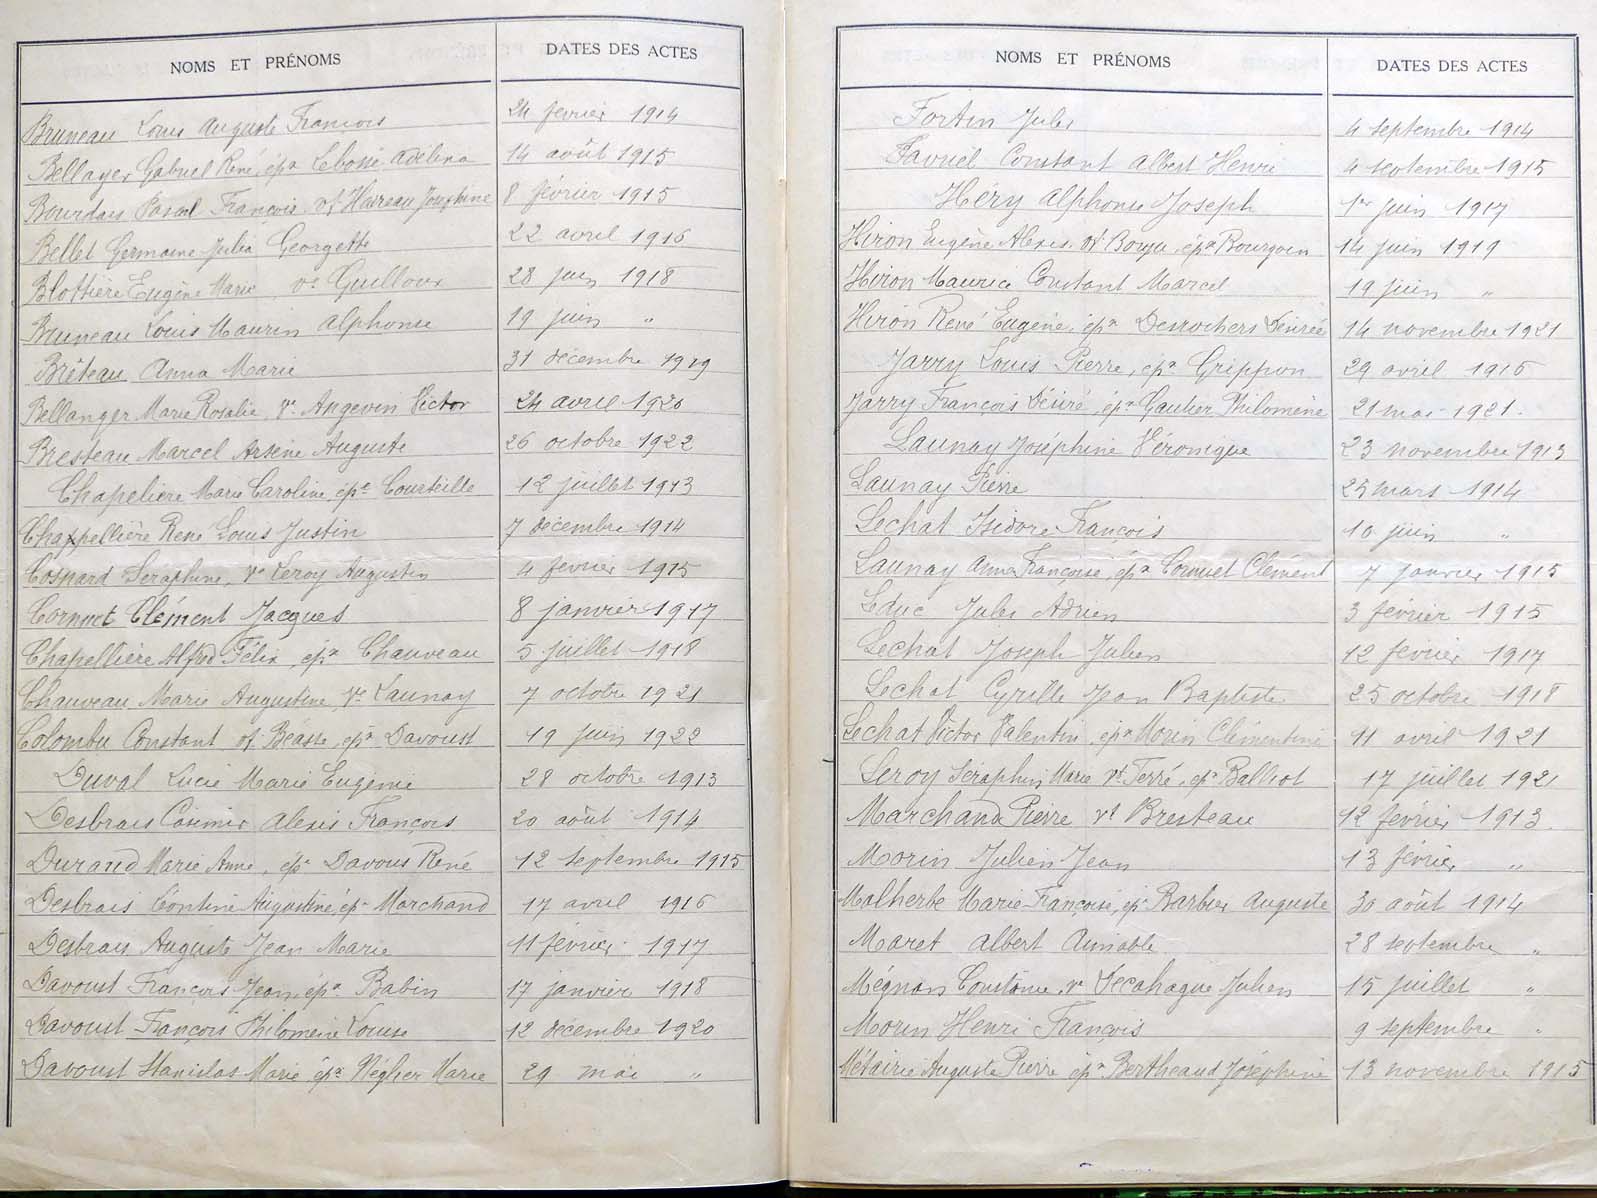 NOMS ET PRÉNOMS DATES DES ACTES
Bruneau Louis Auguste François 24 février 1914
Bellayer Gabriel René, épx Lebossé Adélina 14 août 1915
Bourdais Pascal François vf Hoireau Joséphine 8 février 1915
Bellet Germaine Julia Georgette 22 avril 1916
Blottière Eugène Marie ve Guilloux 28 juin 1918
Bruneau Louis Maurin Alphonse 19 juin "
Brêteau Anna Marie 31 décembre 1919
Bellanger Marie Rosalie, ve Angevin Victor 24 avril 1920
Bresteau Marcel Arsène Auguste 26 octobre 1922
Chapelière Marie Caroline épse Courteille 12 juillet 1913
Chappellière René Louis Justin 7 décembre 1914
Cospard Séraphine, ve Leroy Augustin 4 février 1915
Cornuet Clément Jacques 8 janvier 1917
Chapellière Alfred Félix, épx Chauveau 5 juillet 1918
Chauveau Marie Augustine, ve Launay 7 octobre 1921
Colombu Constant vf Béasse, épx Davoust 19 juin 1922
Duval Lucie Marie Eugénie 28 octobre 1913
Desbrais Casimir Alexis François 20 août 1914
Durand Marie Anne, épse Davous René 12 septembre 1915
Desbrais Léontine Augustine, épse Marchand 17 avril 1916
Desbrais Auguste Jean Marie 11 février 1917
Davoust François Jean, épx Babin 17 janvier 1918
Davoust François Philomène Louise 12 décembre 1920
Davoust Stanislas Marie épx Négher Marie 29 mai "
NOMS ET PRÉNOMS DATES DES ACTES
Fortin Jules 4 septembre 1914
Favriel Constant Albert Henri 4 septembre 1915
Héry Alphonse Joseph 1er juin 1917
Hiron Eugène Alexis, vf Bouju, épx Bourgoin 14 juin 1919
Hiron Maurice Constant Marcel 19 juin "
Hiron René Eugène, épx Desrochers Désirée 14 novembre 1921
Jarry Louis Pierre, épx Grippon 29 avril 1916
Jarry François Désiré, épx Gautier Philomène 21 mai 1921
Launay Joséphine Véronique 23 novembre 1913
Launay Pierre 25 mars 1914
Lechat Isidore François 10 juin "
Launay Anna Françoise, épse Cornuet Clément 7 janvier 1915
Leduc Jules Adrien 3 février 1915
Lechat Joseph Julien 12 février 1917
Lechat Cyrille Jean Baptiste 25 octobre 1918
Lechat Victor Valentin, épx Morin Clémentine 11 avril 1921
Leroy Séraphin Marie vf Terré, épx Balliot 17 juillet 1921
Marchand Pierre vf Bresteau 12 février 1913
Morin Julien Jean 13 février "
Malherbe Marie-Françoise, épse Barbier Auguste 30 août 1914
Maret Albert Aimable 28 septembre "
Mégnan Constance, ve Décahague Julien 15 juillet "
Morin Henri François 9 septembre "
Métairie Auguste Pierre épx Bertheaud Joséphine 13 novembre 1915